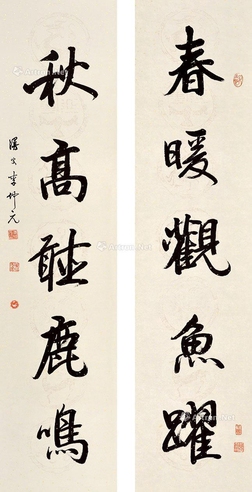 春暖觀魚躍
秋高聽鹿鳴
李坤元